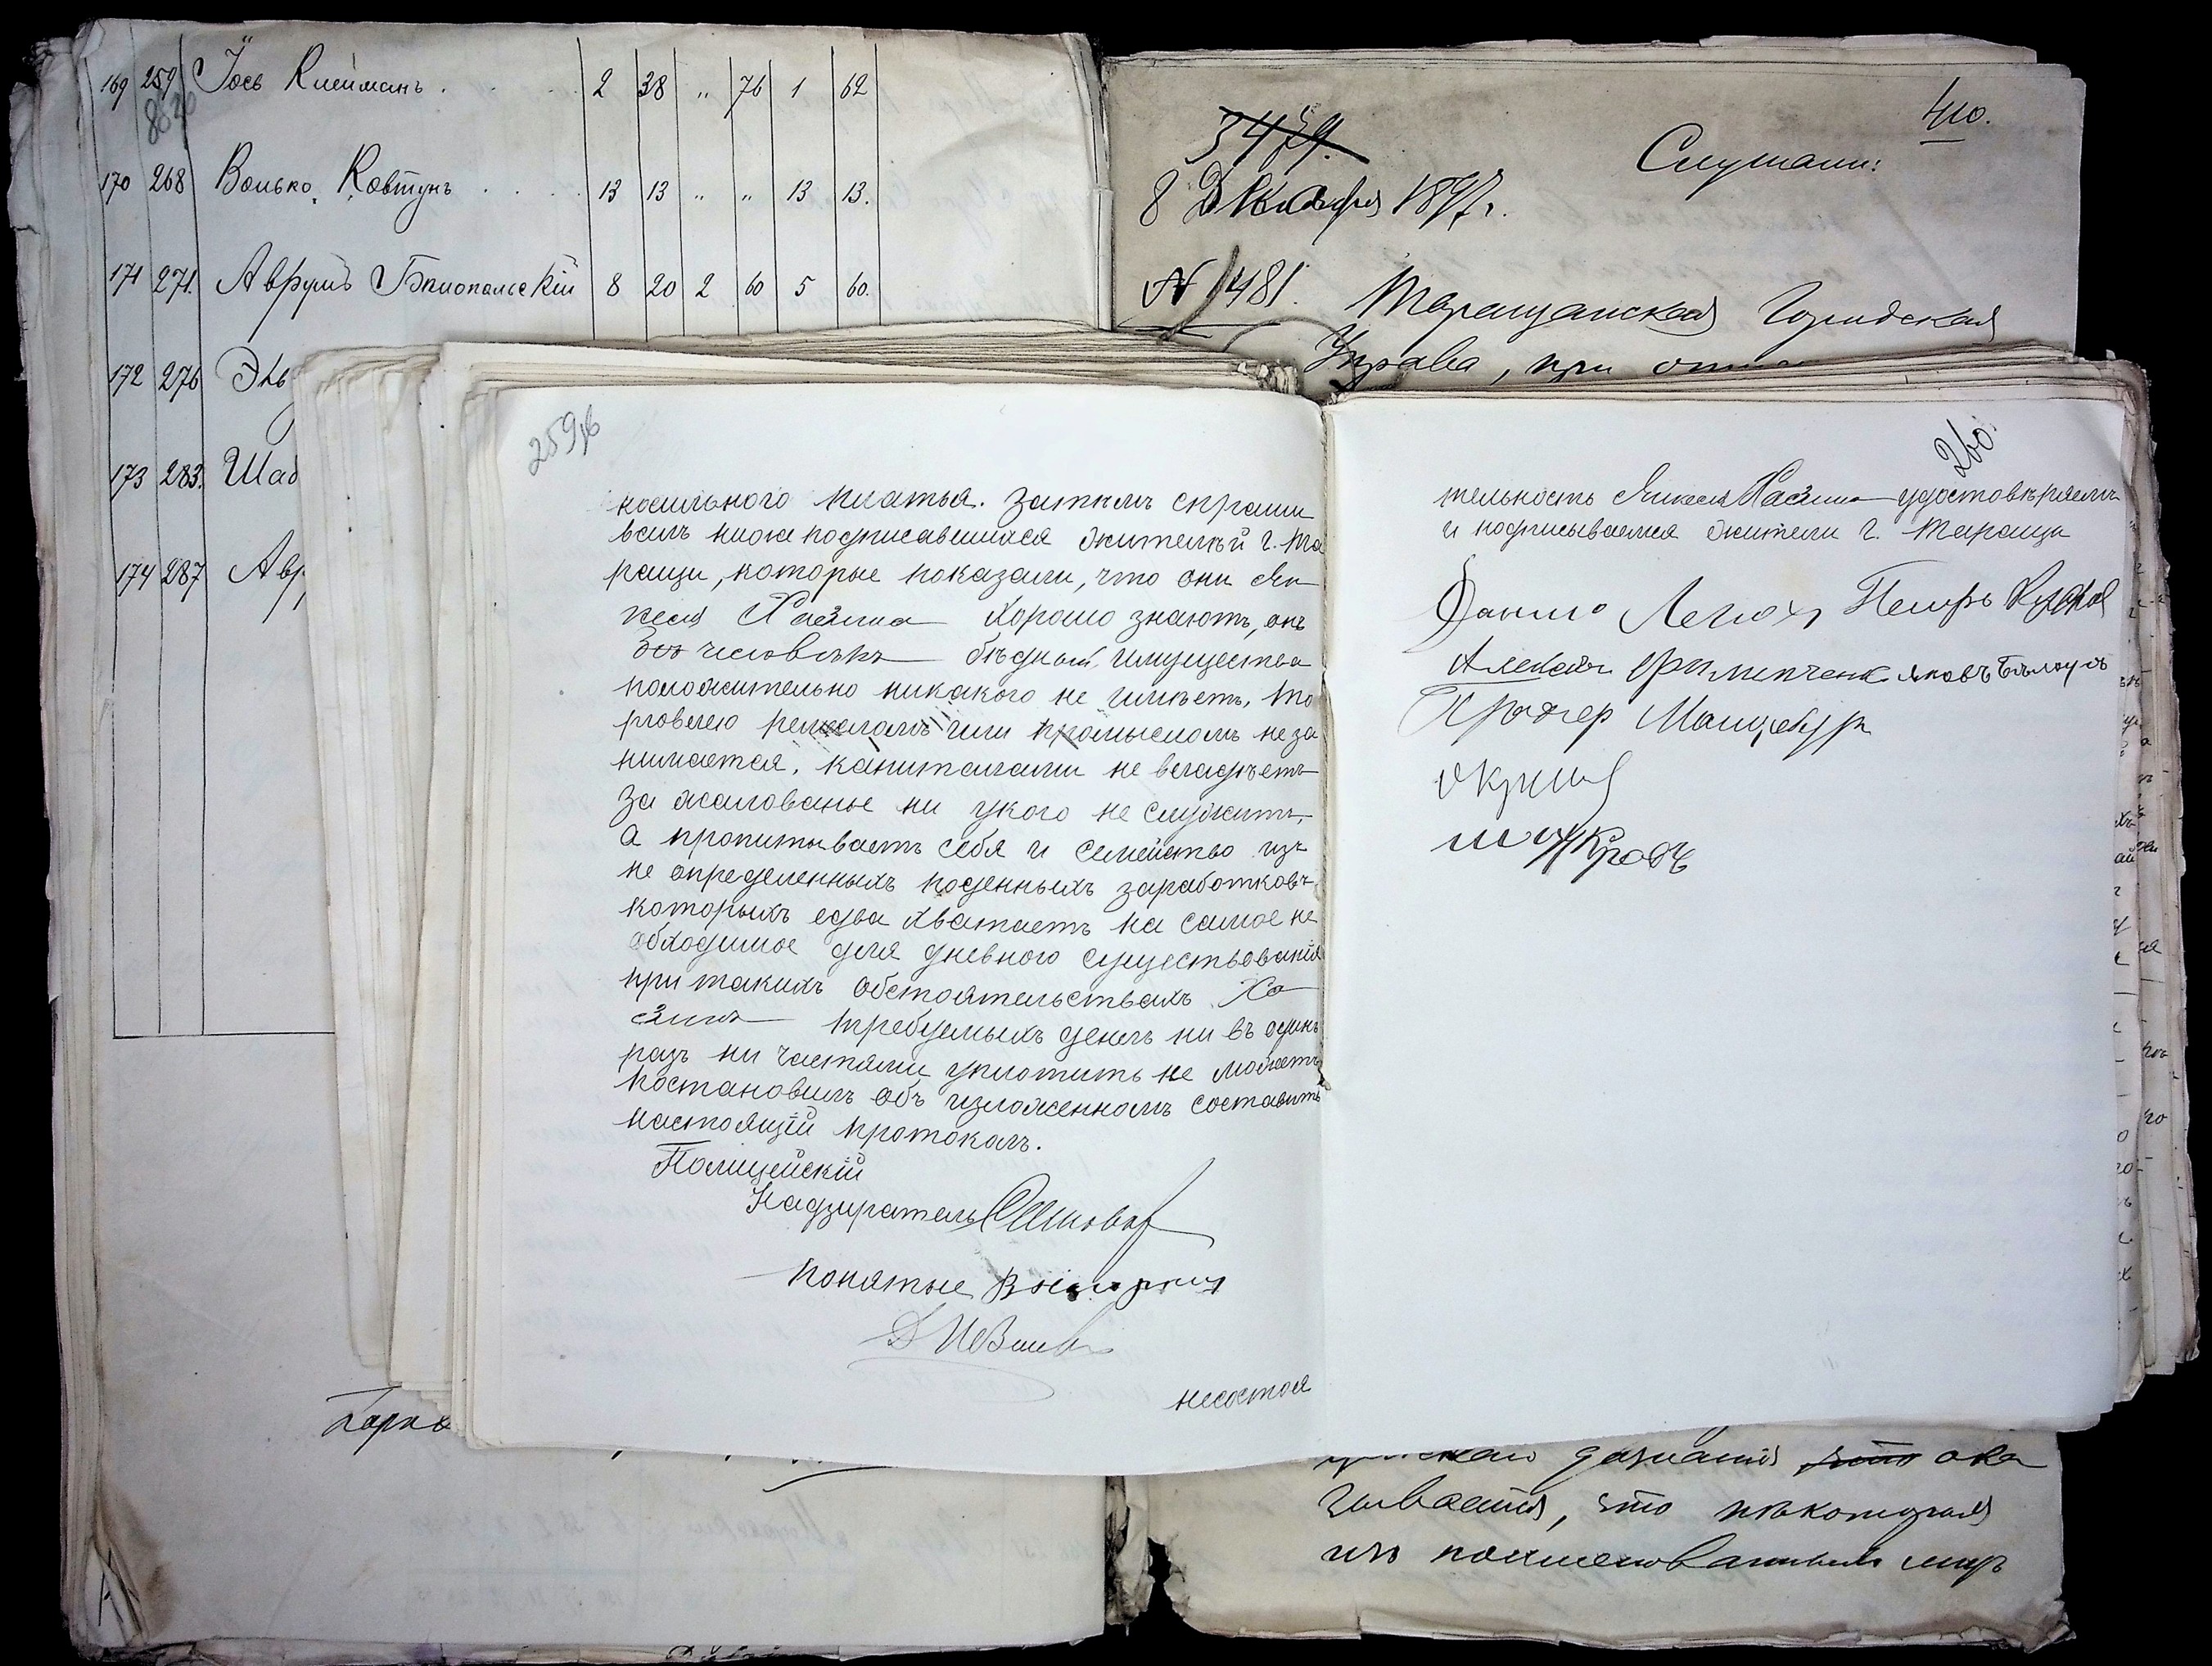 169 259 Іось Клейманъ . . . 2 38 „ 76 1 62
170 268 Волько Ковтунъ . . . . 13 13 „ „ 13 13.
171 271. Аврумъ Бялопольскій 8 20 2 60 5 60.
172 276
173 283. Шаб
174 287 Авр
410.
3479.
Слушали:
8 Декабря 1897 г.
№ 1481. Таращанская Городская
Управа, при
259 об
косильного платья. Затѣмъ спраши
валъ ниже подписавшихся жителей г. Та
ращи, которые показали, что они Ян
келя Хазина хорошо знаютъ, онъ
человѣкъ бѣдный, имущества
положительно никакого не имѣетъ, то
рговлею ремесломъ или промысломъ не за
нимается, капиталами не владѣетъ
За жалованье ни укого не служитъ,
а пропитываетъ себя и семейство изъ
не определенныхъ поденныхъ заработковъ,
которыхъ едва хватаетъ на самое не
обходимое для дневного существованія
при такихъ обстоятельствахъ Ха
зинъ требуемыхъ денегъ ни въ одинъ
разъ ни частями уплотить не можетъ
постановилъ объ изложенномъ составить
настоящій протоколъ.
Полицейскій
Надзиратель
Понятые
несостоя
260.
тельность Янкеля Хазина удостовѣряемъ
и подписываемся жители г. Таращи
Данило Петръ
Филипченко Яковъ
дознанія что ока
зывается, что нѣкоторыя
изъ поименованныхъ лицъ